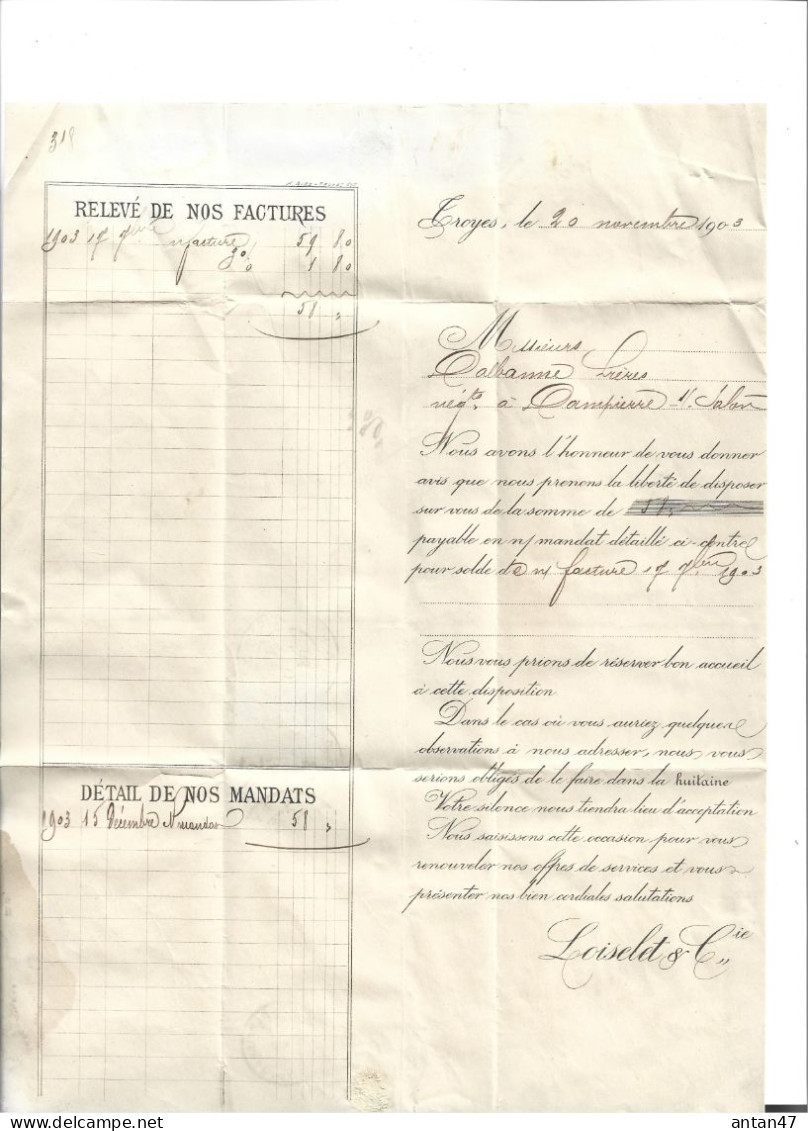 318
RELEVÉ DE NOS FACTURES
1903 17 7bre n/facture 59 80
3% 1 80
58 "
Troyes, le 20 novembre 1903
Messieurs
Dalbanne Frères
négts à Dampierre s/. Salon
Nous avons l'honneur de vous donner
avis que nous prenons la liberté de disposer
sur vous de la somme de 58,
payable en n/ mandat détaillé ci-contre
pour solde de n/ facture 17 7bre 1903
Nous vous prions de réserver bon accueil
à cette disposition
Dans le cas où vous auriez quelques
observations à nous adresser, nous vous
serions obligés de le faire dans la huitaine
Votre silence nous tiendra lieu d'acceptation
Nous saisissons cette occasion pour vous
renouveler nos offres de services et vous
présenter nos bien cordiales salutations
Loiselet & Cie
DÉTAIL DE NOS MANDATS
1903 15 Décembre N/ mandat 58 "
antan47